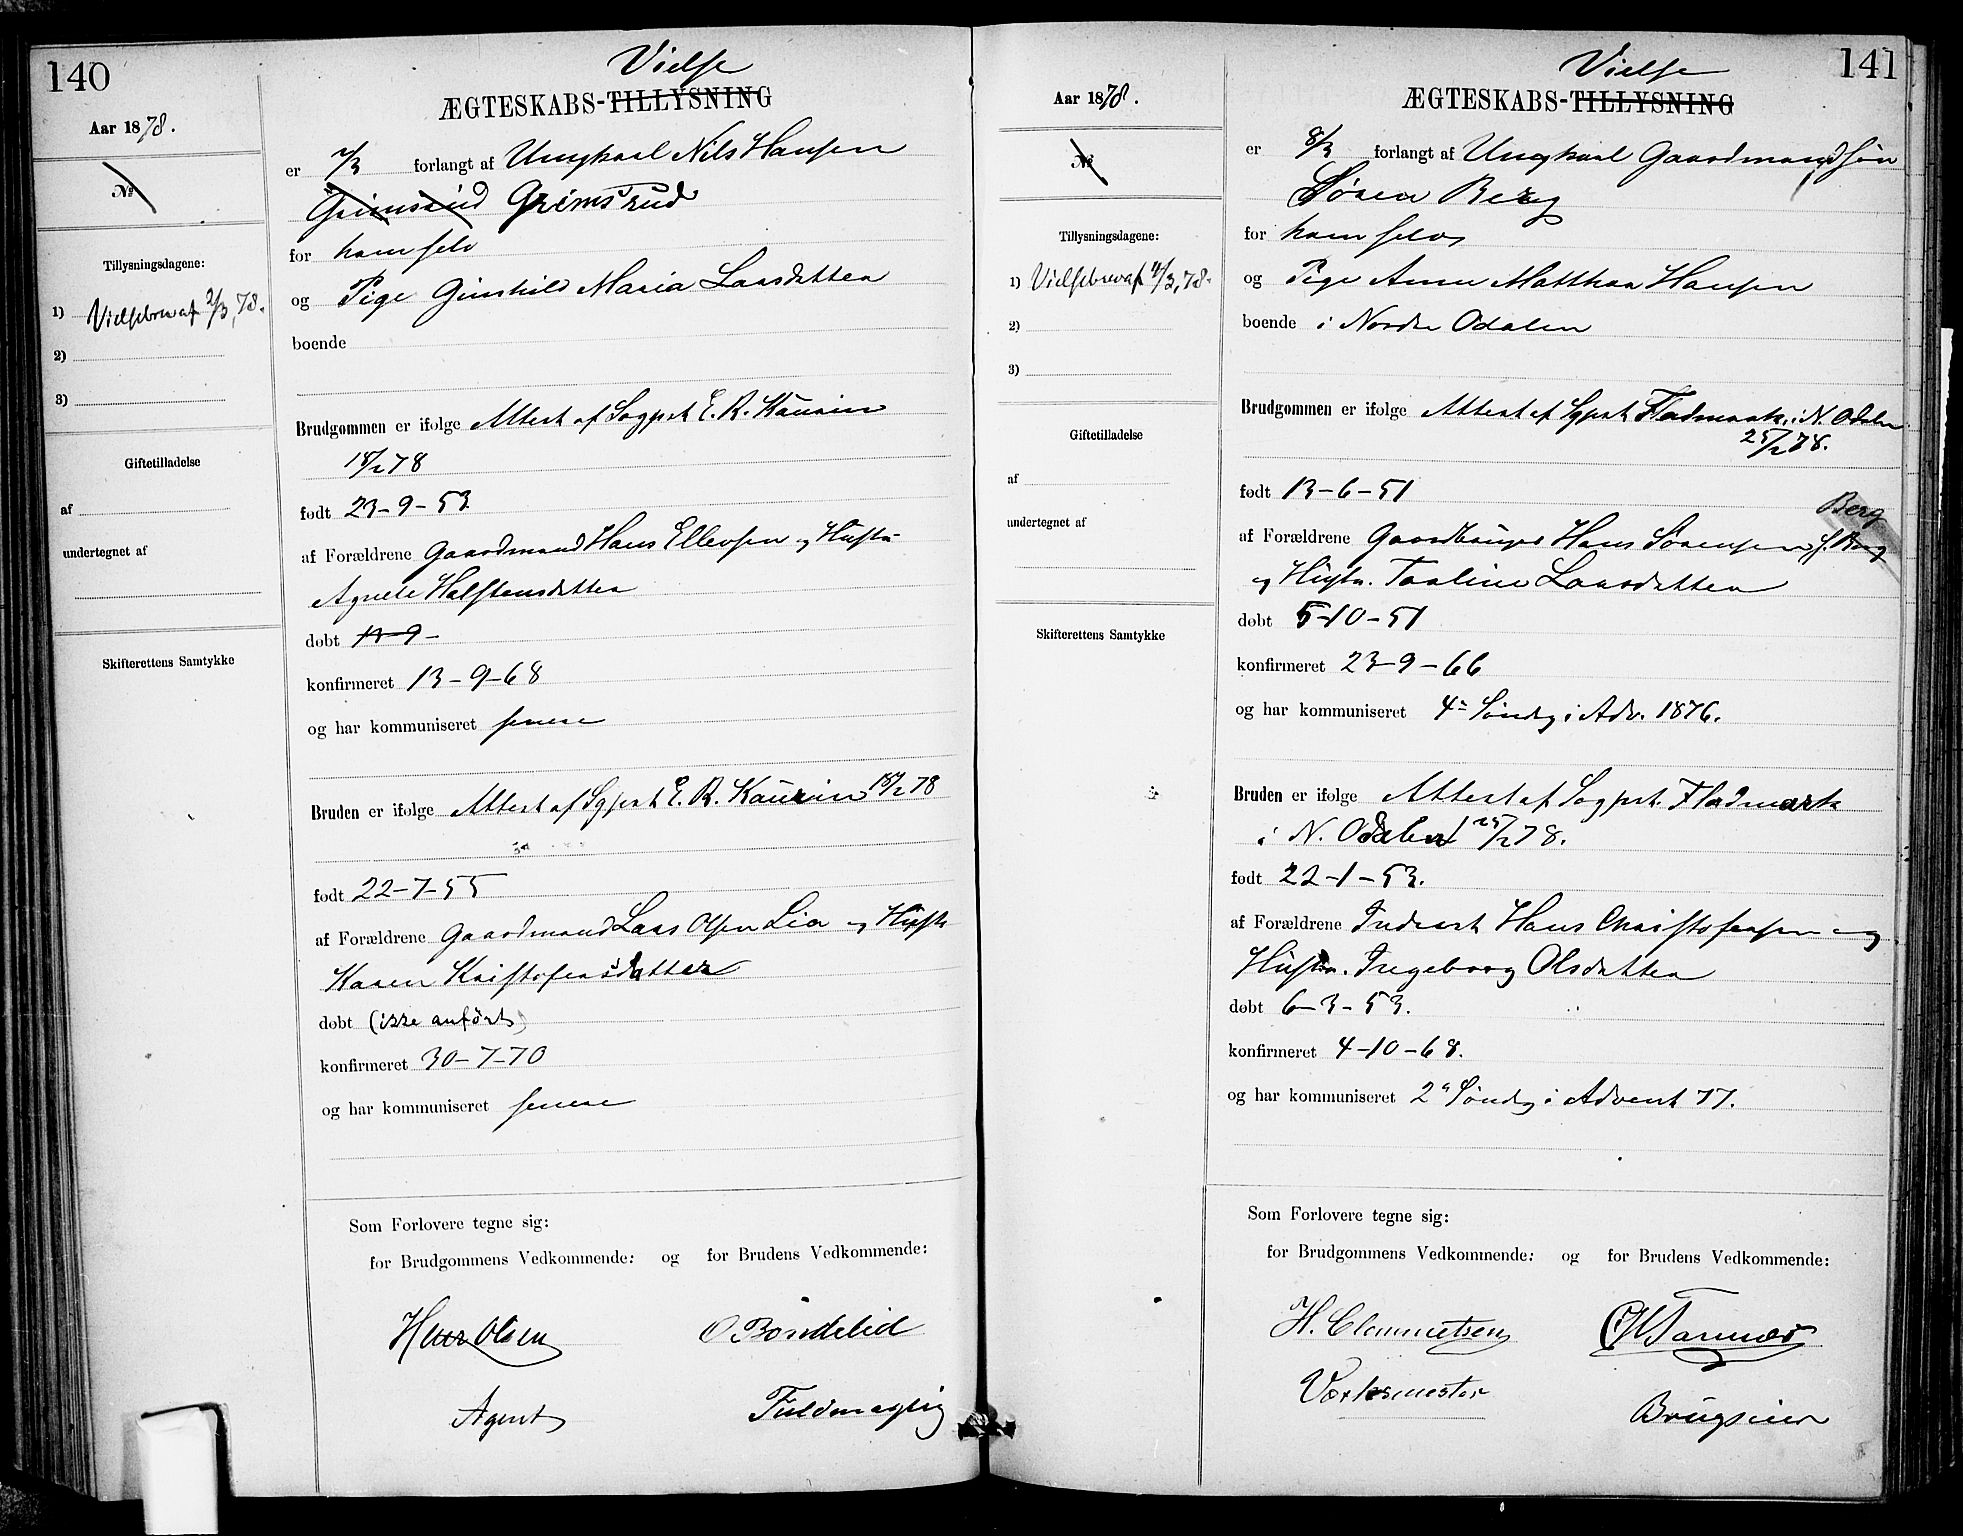 140
Aar 1878.
№
Tillysningsdagene:
1) Vielsebrev af 2/3, 78.
2)
3)
Giftetilladelse
af
undertegnet af
Skifterettens Samtykke
Vielse
ÆGTESKABS-TILLYSNING
er 7/3 forlangt af Ungkarl Nils Hansen
Grimsrud Grimsrud
for ham selv
og Pige Gunhild Maria Larsdatter
boende
Brudgommen er ifølge Attest af Sogpst E. R. Kaurin
18/2 78
født 23-9-53
af Forældrene Gaardmand Hans Ellevsen og Hustr
Agnete Halstensdatter
døbt 11-9-
konfirmeret 13-9-68
og har kommuniseret senere
Bruden er ifølge Attest af Sgpst E. R. Kaurin 18/2 78
født 22-7-55
af Forældrene Gaardmand Lars Olsen Lia og Hustr
Karen Kristofersdatter
døbt (ikke anført)
konfirmeret 30-7-70
og har kommuniseret senere
Som Forlovere tegne sig:
for Brudgommens Vedkommende: og for Brudens Vedkommende:
Olsen O Bondelid
Agent Fuldmægtig
141
Aar 1878.
№
Tillysningsdagene:
1) Vielsebrev af 4/3, 78.
2)
3)
Giftetilladelse
af
undertegnet af
Skifterettens Samtykke
Vielse
ÆGTESKABS-TILLYSNING
er 8/3 forlangt af Ungkarl Gaardmandssøn
Søren Berg
for ham selv
og Pige Anne Matthea Hansen
boende i Nordre Odalen
Brudgommen er ifølge Attest af Sgpst Fladmark i N. Odalen
25/2 78.
født 13-6-51
Berg
af Forældrene Gaardbruger Hans Sørensen
og Hustr. Taaline Larsdatter
døbt 5-10-51
konfirmeret 23-9-66
og har kommuniseret 4de Søndg i Adv. 1876.
Bruden er ifølge Attest af Sogpst. Fladmark
i N. Odalen 25/2 78.
født 22-1-53.
af Forældrene Inderst Hans Christofersen og
Hustr. Ingeborg Olsdatter
døbt 6-3-53.
konfirmeret 4-10-68.
og har kommuniseret 2n Søndg i Advent 77.
Som Forlovere tegne sig:
for Brudgommens Vedkommende: og for Brudens Vedkommende:
H. Clemmetsen
Værksmester Brugseier